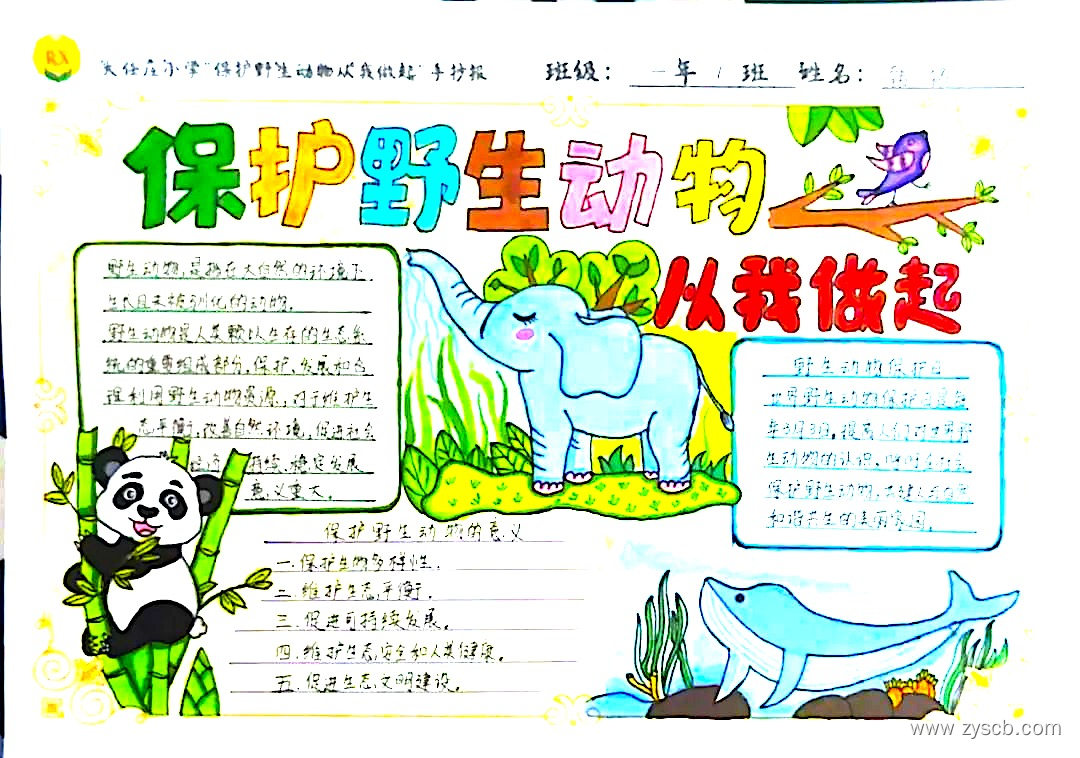 RX
大任庄小学"保护野生动物从我做起"手抄报 班级: 一年 1 班 姓名:
保护野生动物
从我做起
野生动物,是指在大自然的环境下
生长且未被驯化的动物.
野生动物是人类赖以生存的生态系
统的重要组成部分,保护、发展和合
理利用野生动物资源,对于维护生
态平衡,改善自然环境,促进社会
经济 持续、稳定发展
意义重大.
野生动物保护日
世界野生动物保护日是每
年3月3日,提高人们对世界野
生动物的认识,呼吁全社会
保护野生动物,共建人与自然
和谐共生的美丽家园.
保护野生动物的意义
一.保护生物多样性.
二.维护生态平衡.
三.促进可持续发展.
四.维护生态安全和人类健康.
五.促进生态文明建设.
www.zyscb.com